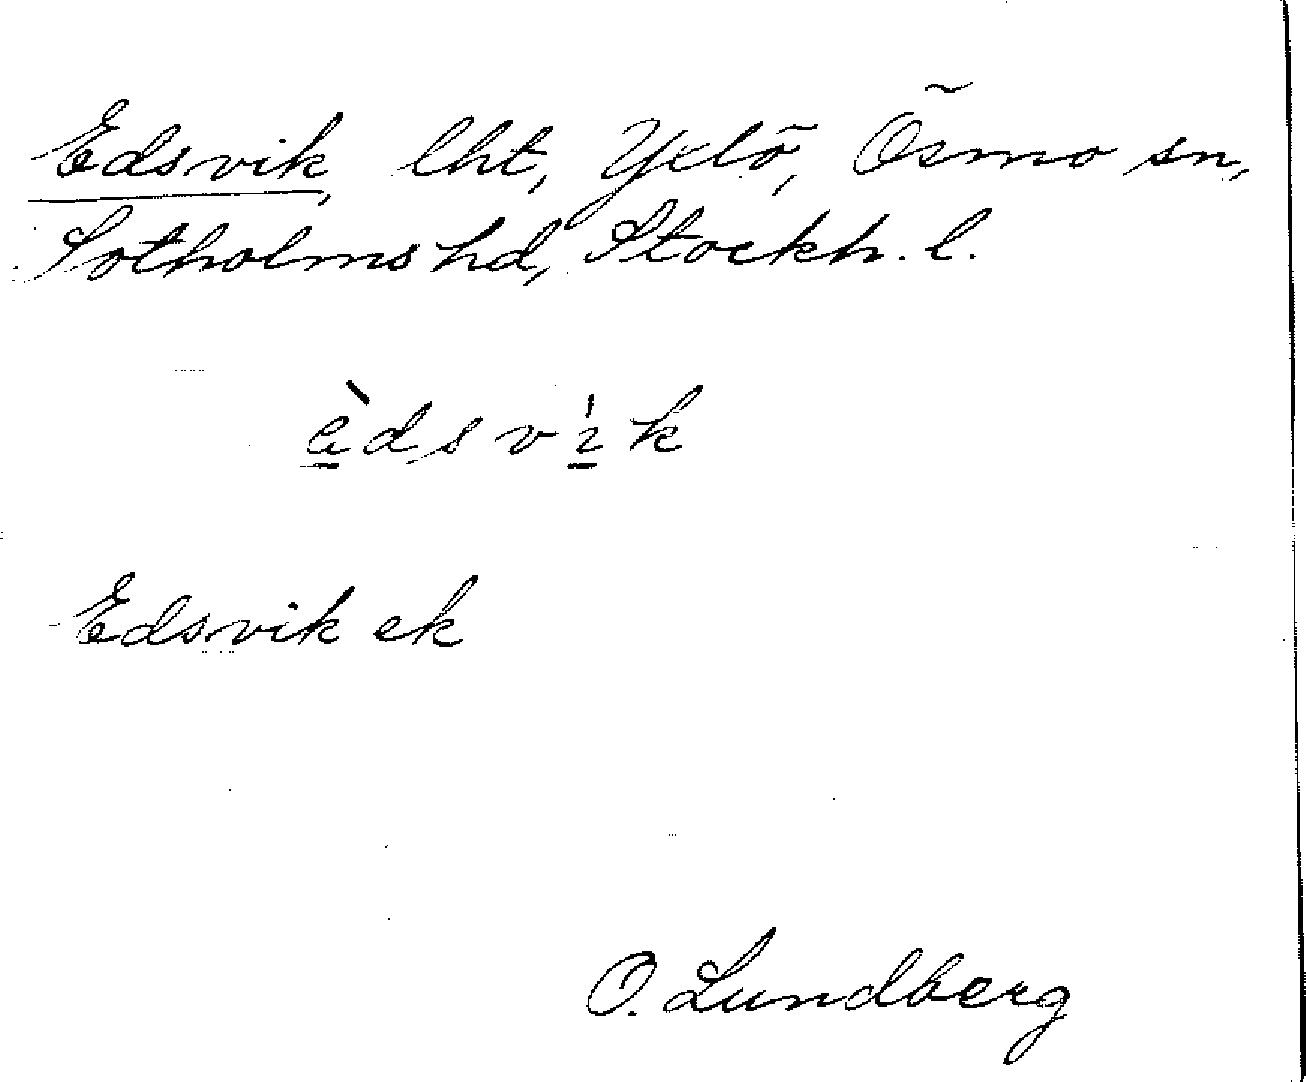 Edsvik, lht, Yxlö, Ösmo sn,
Sotholms hd, Stockh. l.
èdsvik
Edsvik ek
O. Lundberg